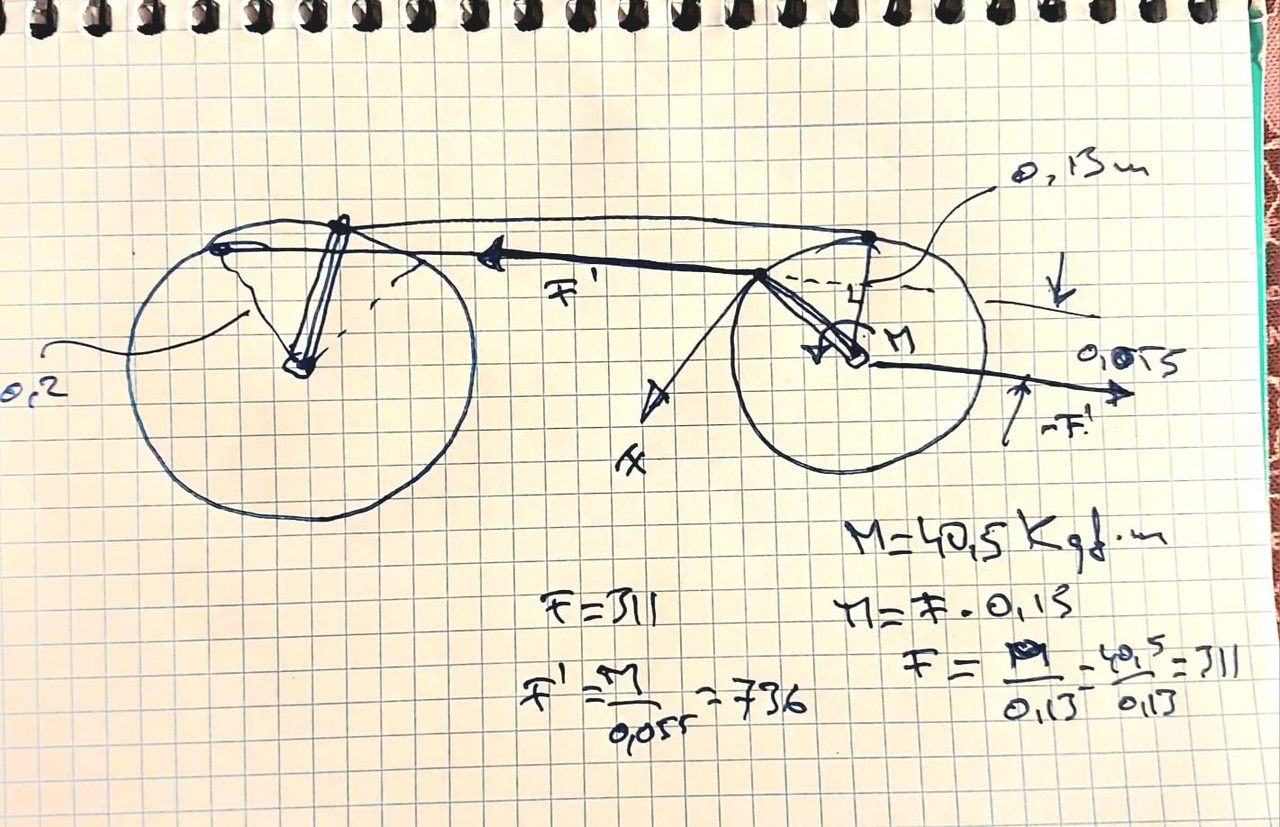 0,13m
F'
M
0,2
0,055
-F'
F
M=40,5 Kgf.m
F=311
M= F . 0,13
F = M/0,13 = 40,5/0,13 = 311
F' = M/0,055 = 736